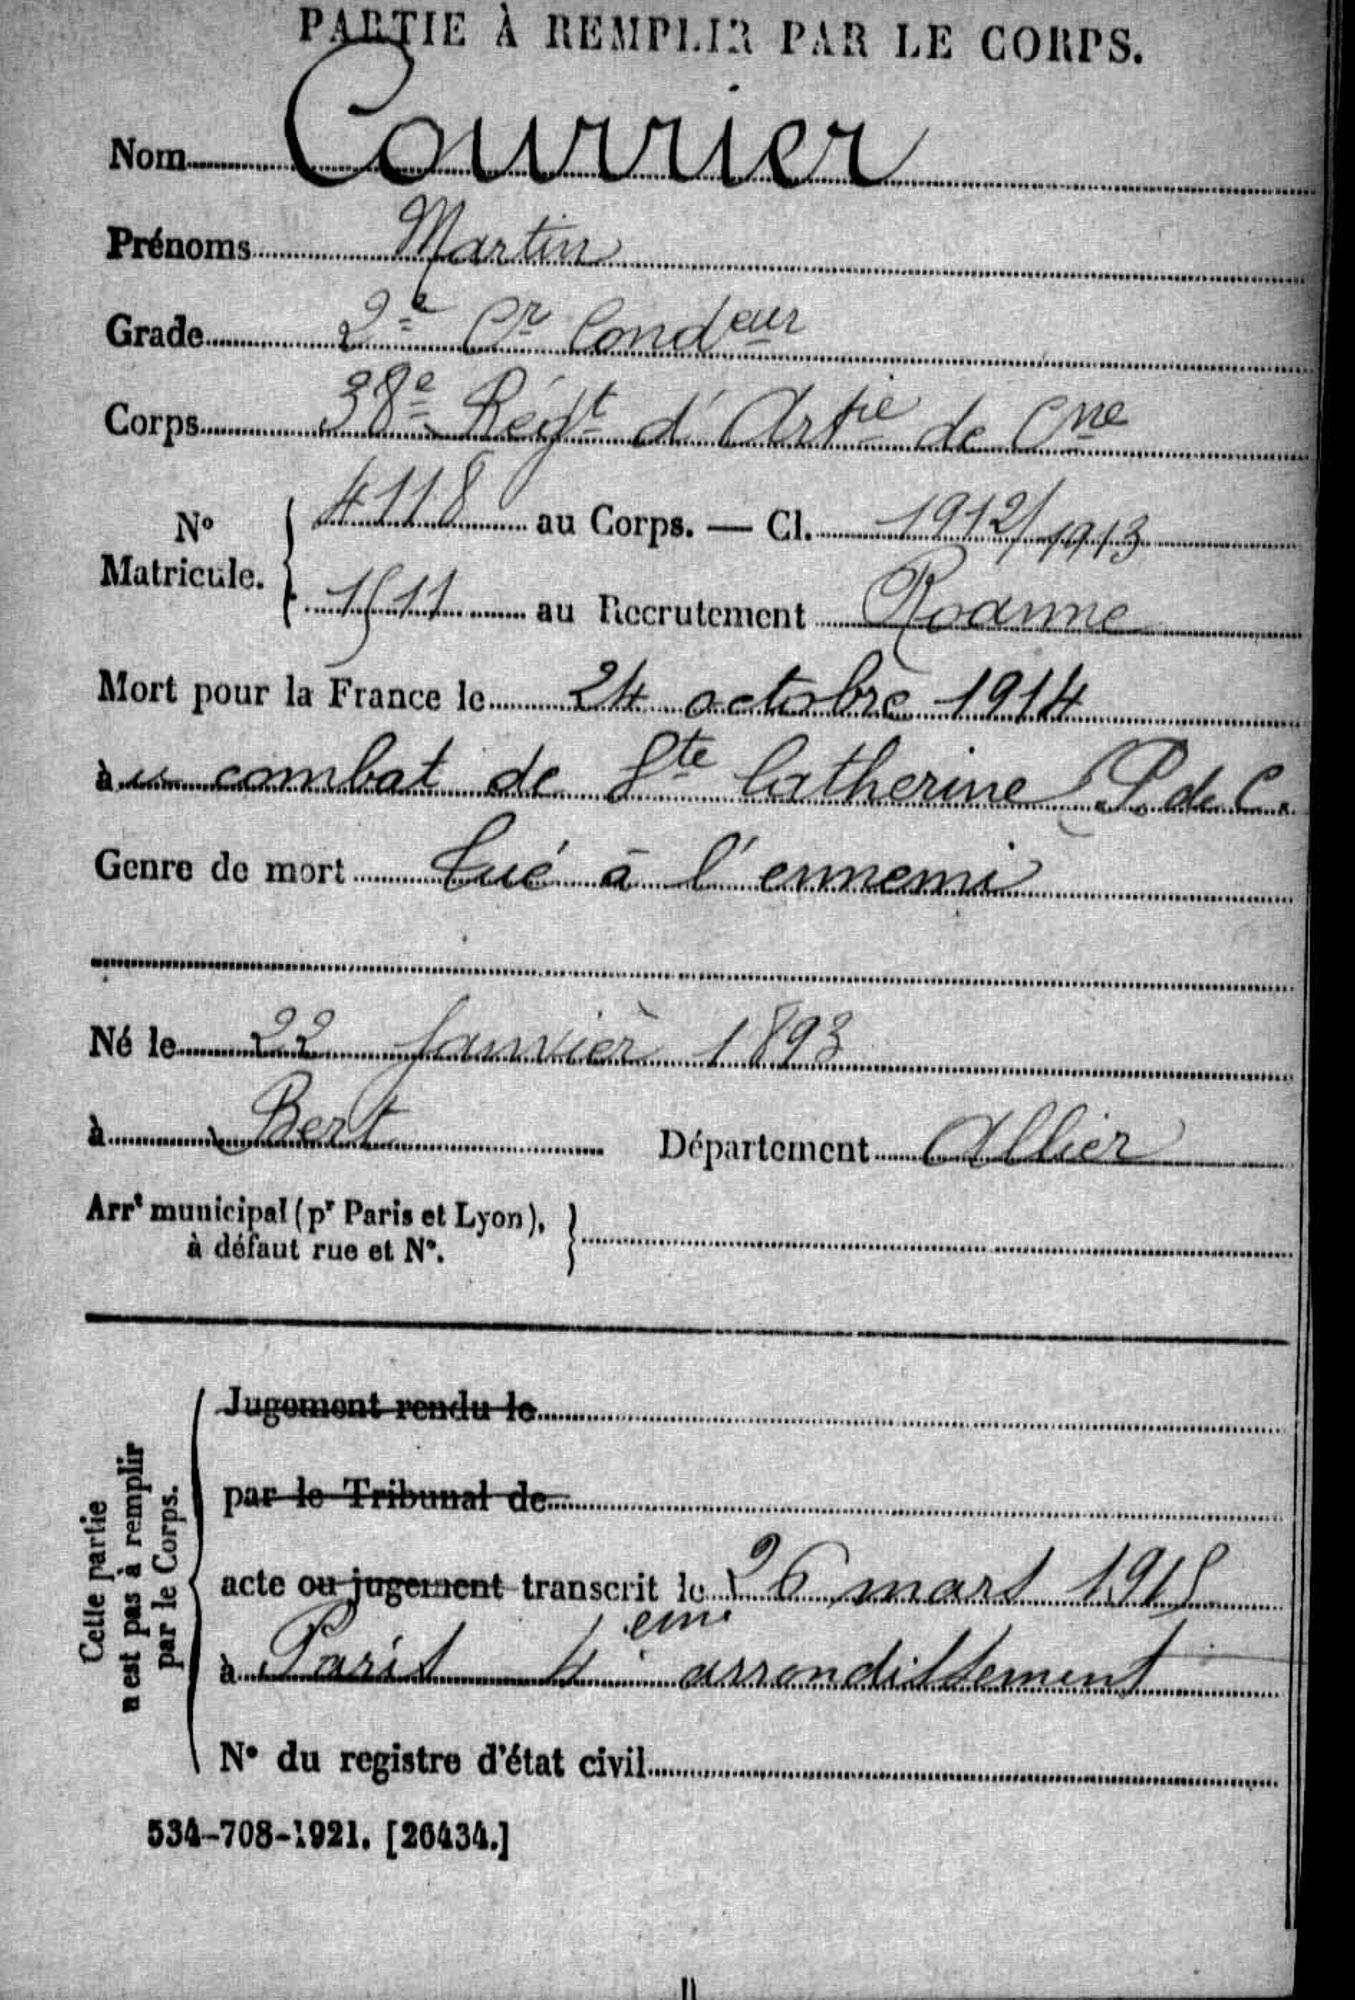 PARTIE À REMPLIR PAR LE CORPS.
Nom Courrier
Prénoms Martin
Grade 2e Cr Condeur
Corps 38e Régt d'Artie de Cne
No Matricule. { 4118 au Corps. — Cl. 1912/1913
1511 au Recrutement Roanne
Mort pour la France le 24 octobre 1914
au combat de Ste Catherine (P. de C.
Genre de mort tué à l'ennemi
Né le 22 Janvier 1893
à Bert Département Allier
Arrt municipal (pr Paris et Lyon), }
à défaut rue et No.
Cette partie
n'est pas à remplir
par le Corps.
Jugement rendu le
par le Tribunal de
acte ou jugement transcrit le 26 mars 1915
à Paris 4eme arrondissement
No du registre d'état civil
534-708-1921. [26434.]